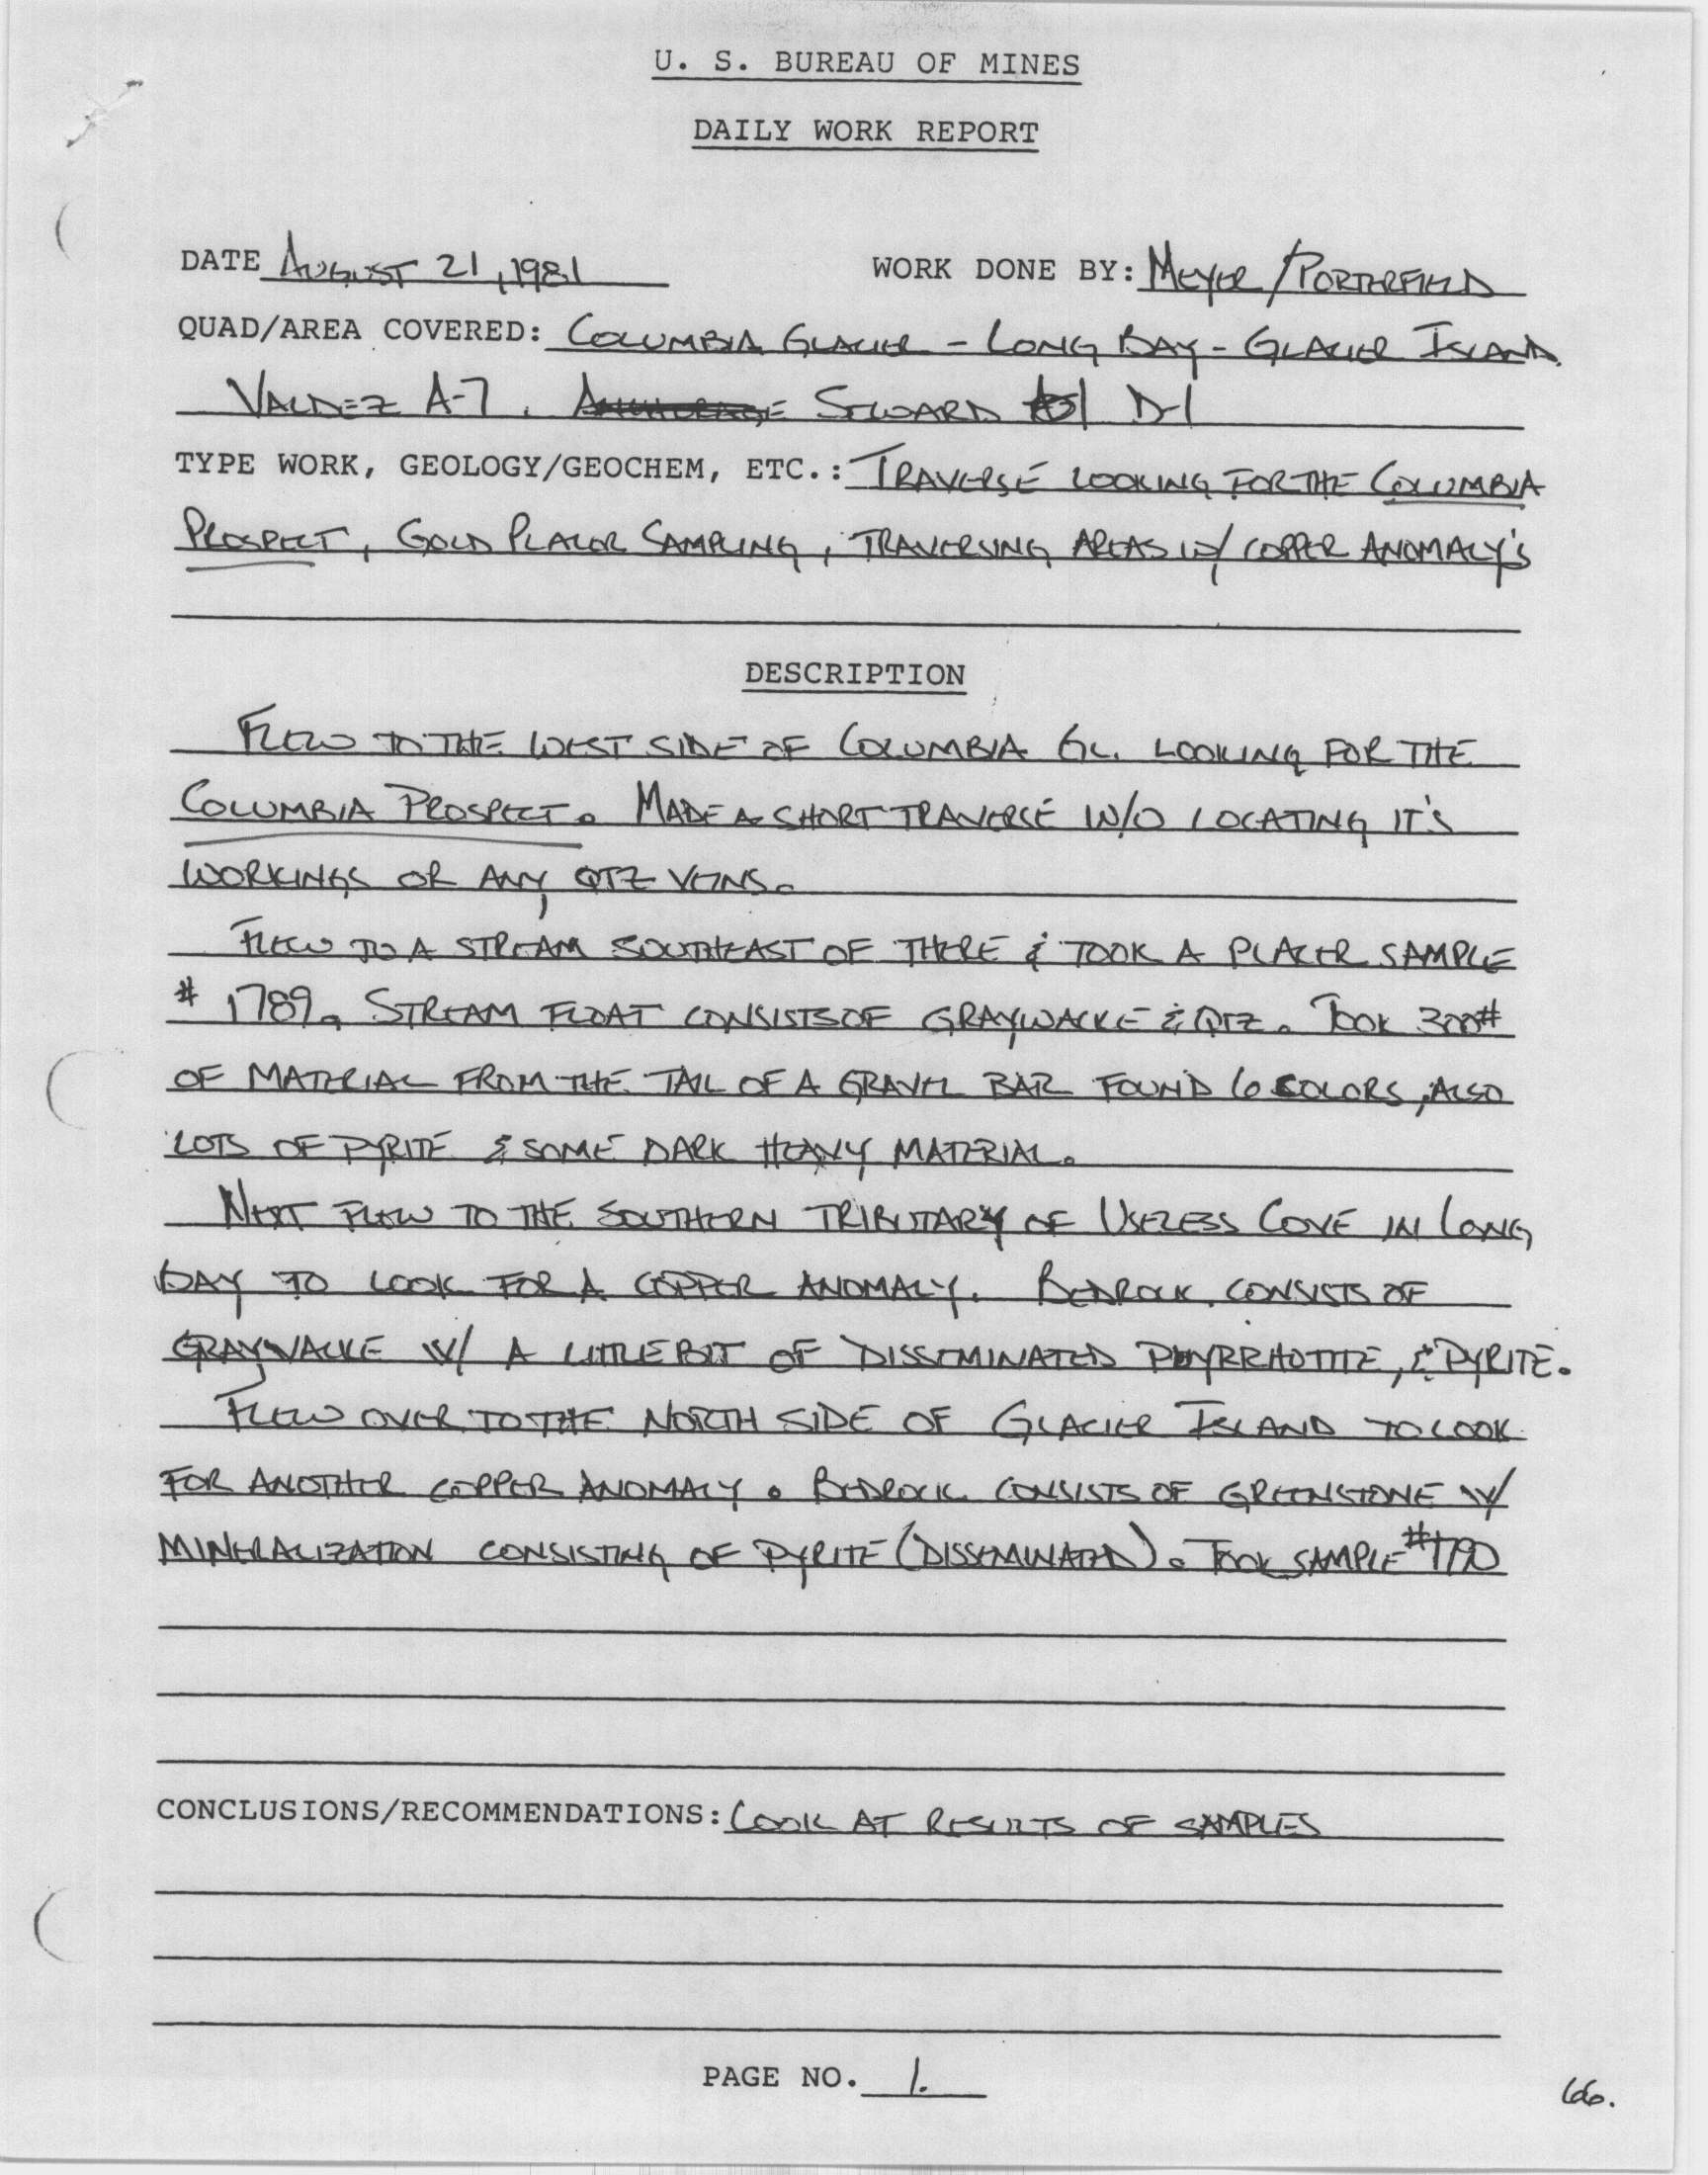 U. S. BUREAU OF MINES
DAILY WORK REPORT
DATE AUGUST 21, 1981 WORK DONE BY: MEYER/PORTERFIELD
QUAD/AREA COVERED: COLUMBIA GLACIER - LONG BAY - GLACIER ISLAND
VALDEZ A-7, ANCHORAGE SEWARD D-1
TYPE WORK, GEOLOGY/GEOCHEM, ETC.: TRAVERSE LOOKING FOR THE COLUMBIA
PROSPECT, GOLD PLACER SAMPLING, TRAVERSING AREAS W/ COPPER ANOMALY'S
DESCRIPTION
FLEW TO THE WEST SIDE OF COLUMBIA GL. LOOKING FOR THE
COLUMBIA PROSPECT. MADE A SHORT TRAVERSE W/O LOCATING IT'S
WORKINGS OR ANY QTZ VEINS.
FLEW TO A STREAM SOUTHEAST OF THERE & TOOK A PLACER SAMPLE
# 1789. STREAM FLOAT CONSISTS OF GRAYWACKE & QTZ. TOOK 300#
OF MATERIAL FROM THE TAIL OF A GRAVEL BAR FOUND 6 COLORS, ALSO
LOTS OF PYRITE & SOME DARK HEAVY MATERIAL.
NEXT FLEW TO THE SOUTHERN TRIBUTARY OF USELESS COVE IN LONG
BAY TO LOOK FOR A COPPER ANOMALY. BEDROCK CONSISTS OF
GRAYWACKE W/ A LITTLE BIT OF DISSEMINATED PHYRRHOTITE, & PYRITE.
FLEW OVER TO THE NORTH SIDE OF GLACIER ISLAND TO LOOK
FOR ANOTHER COPPER ANOMALY. BEDROCK CONSISTS OF GREENSTONE W/
MINERALIZATION CONSISTING OF PYRITE (DISSEMINATED). TOOK SAMPLE #1790
CONCLUSIONS/RECOMMENDATIONS: LOOK AT RESULTS OF SAMPLES
PAGE NO. 1.
66.